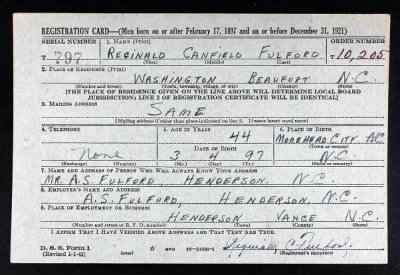 REGISTRATION CARD—(Men born on or after February 17, 1897 and on or before December 31, 1921)
SERIAL NUMBER 1. NAME (Print) ORDER NUMBER
T 797 REGINALD CANFIELD FULFORD T 10,205
(First) (Middle) (Last)
2. PLACE OF RESIDENCE (Print)
WASHINGTON BEAUFORT N.C.
(Number and street) (Town, township, village, or city) (County) (State)
[THE PLACE OF RESIDENCE GIVEN ON THE LINE ABOVE WILL DETERMINE LOCAL BOARD
JURISDICTION; LINE 2 OF REGISTRATION CERTIFICATE WILL BE IDENTICAL]
3. MAILING ADDRESS
SAME
[Mailing address if other than place indicated on line 2. If same insert word same]
4. TELEPHONE 5. AGE IN YEARS 6. PLACE OF BIRTH
44 MOREHEAD CITY N.C.
DATE OF BIRTH (Town or county)
None 3 4 97 N.C.
(Exchange) (Number) (Mo.) (Day) (Yr.) (State or country)
7. NAME AND ADDRESS OF PERSON WHO WILL ALWAYS KNOW YOUR ADDRESS
MR. A.S. FULFORD, HENDERSON, N.C.
8. EMPLOYER'S NAME AND ADDRESS
A.S. FULFORD, HENDERSON, N.C.
9. PLACE OF EMPLOYMENT OR BUSINESS
HENDERSON VANCE N.C.
(Number and street or R. F. D. number) (Town) (County) (State)
I AFFIRM THAT I HAVE VERIFIED ABOVE ANSWERS AND THAT THEY ARE TRUE.
D. S. S. Form 1 GPO Reginald C. Fulford
(Revised 1-1-42) (Registrant's signature)